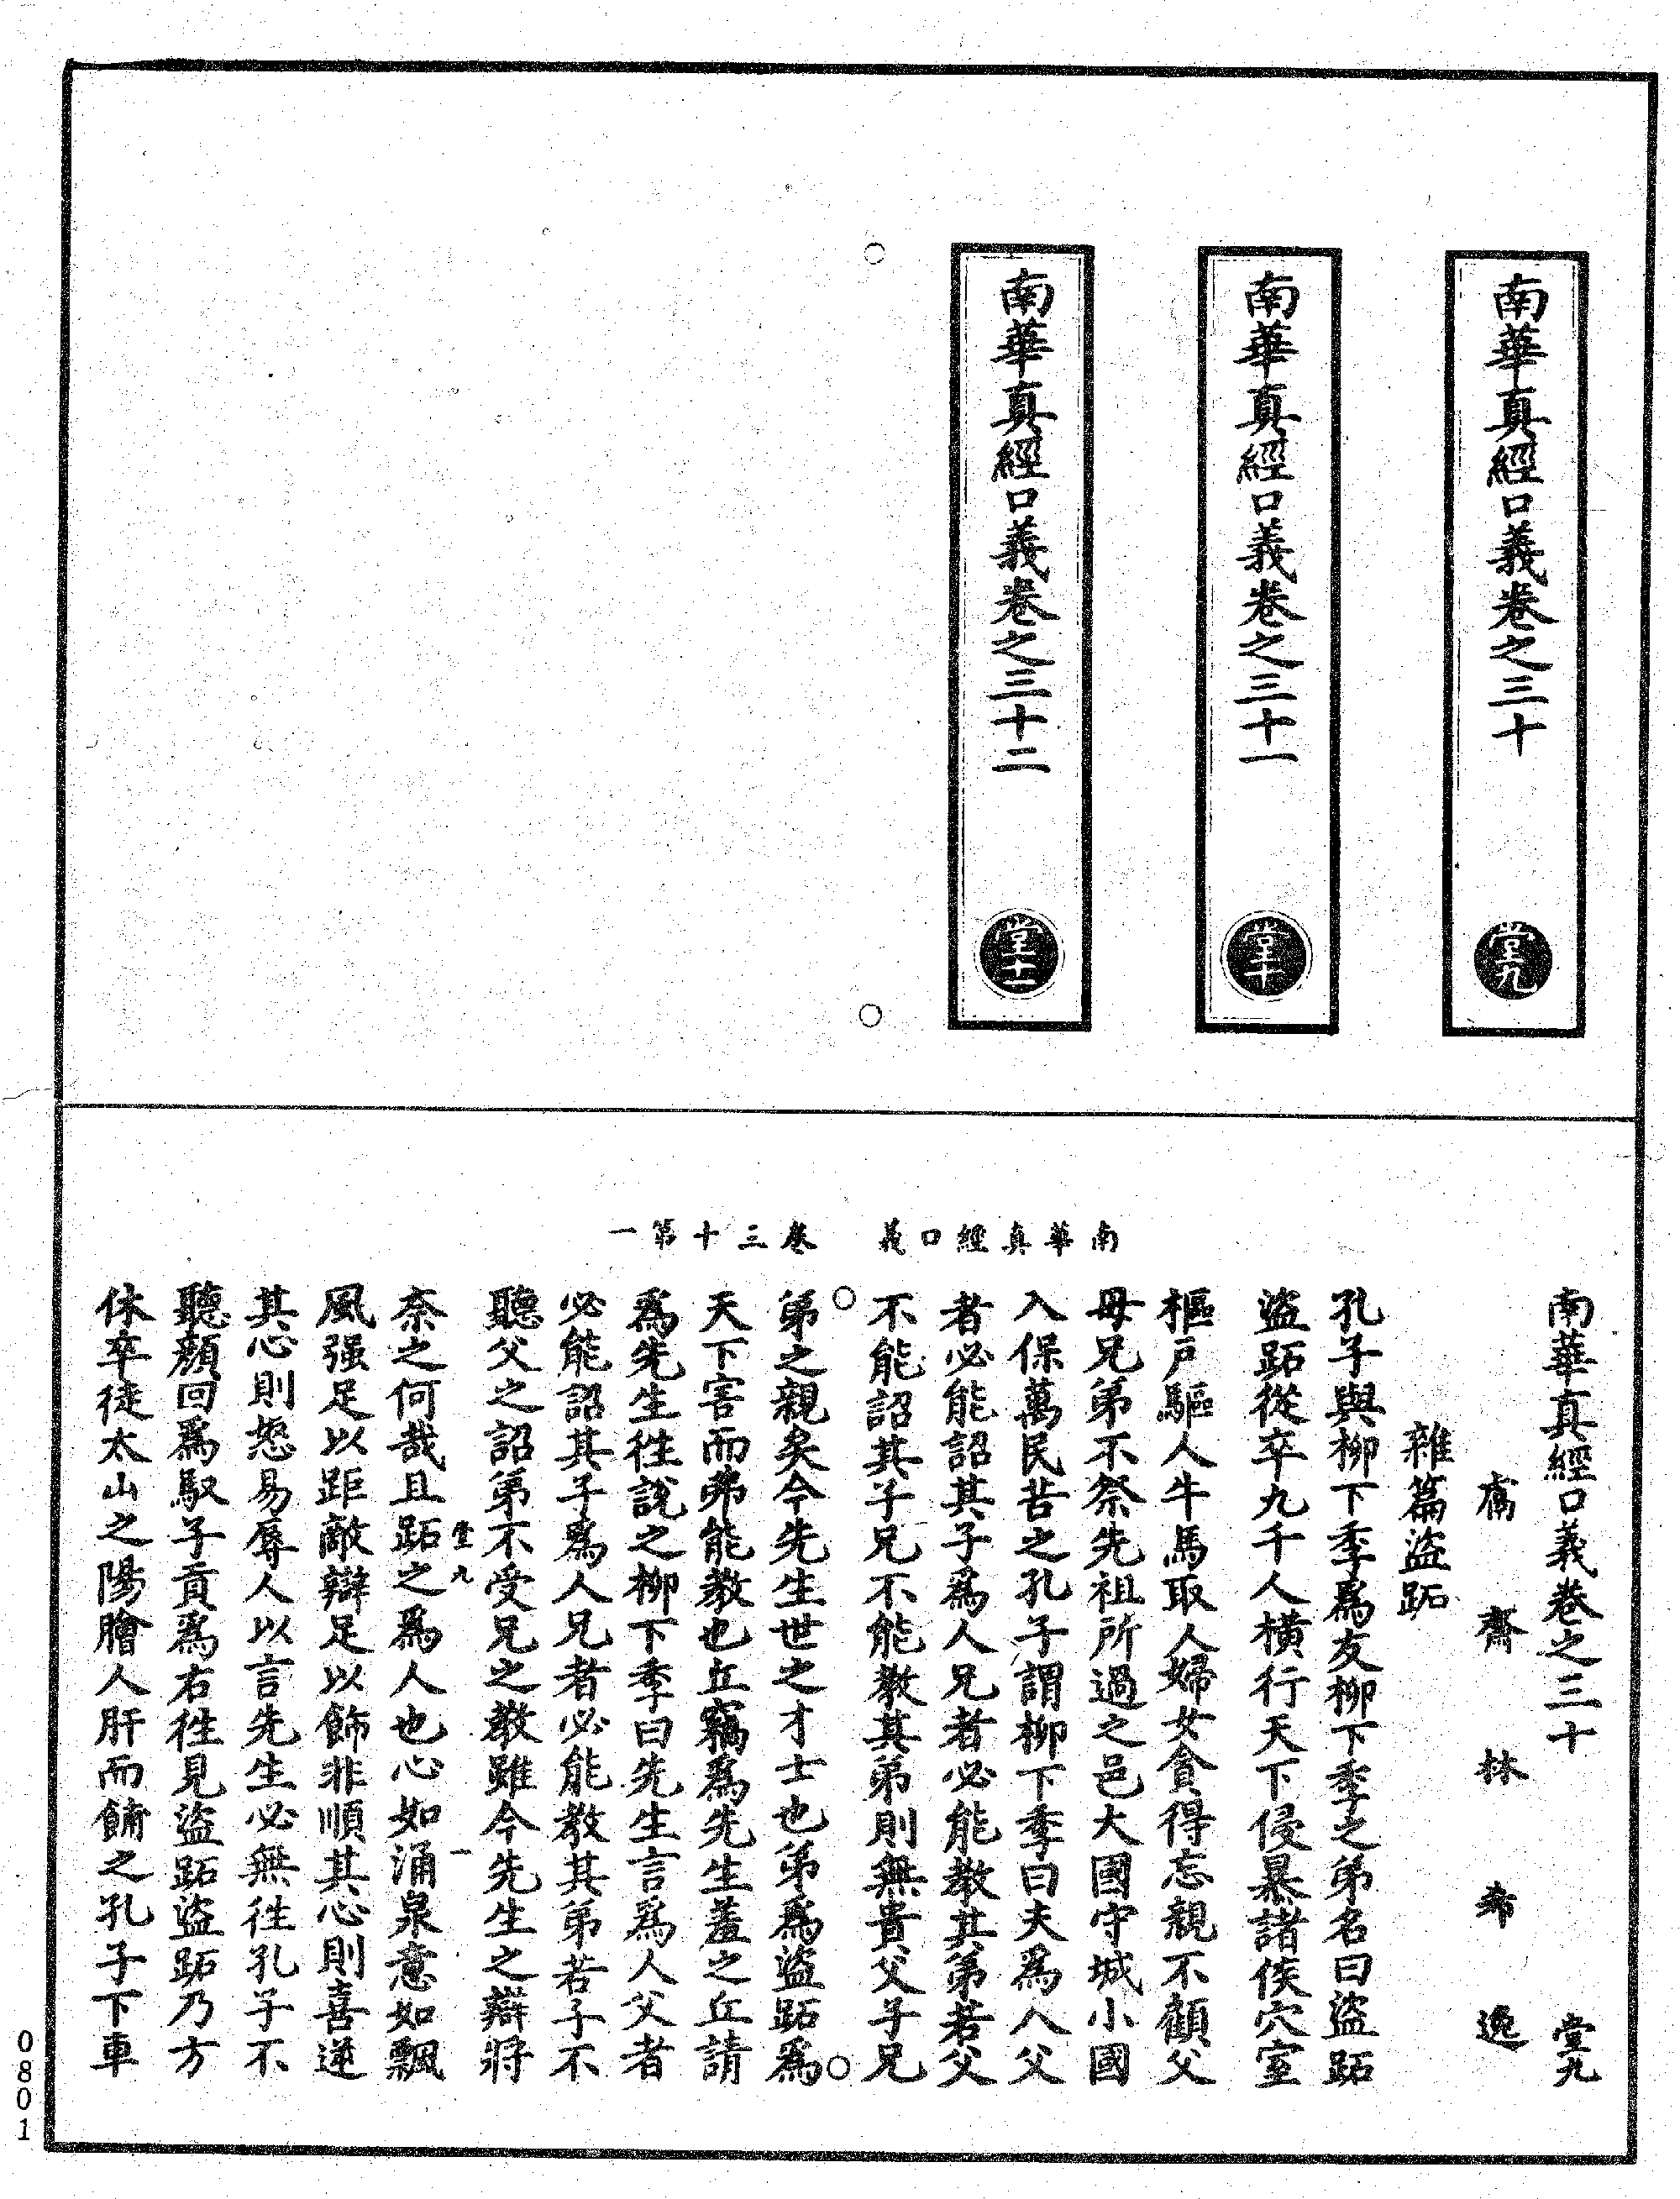 南華真經口義卷之三十
堂九
南華真經口義卷之三十一
堂十
南華真經口義卷之三十二
堂十一
南華真經口義 卷三十第一
南華真經口義卷之三十 堂九
鬳齋林希逸
雜篇盜跖
孔子與柳下季為友柳下季之弟名曰盜跖
盜跖從卒九千人橫行天下侵暴諸侯穴室
樞戶驅人牛馬取人婦女貪得忘親不顧父
母兄弟不祭先祖所過之邑大國守城小國
入保萬民苦之孔子謂柳下季曰夫為人父
者必能詔其子為人兄者必能教其弟若父
不能詔其子兄不能教其弟則無貴父子兄
弟之親矣今先生世之才士也弟為盜跖為
天下害而弗能教也丘竊為先生羞之丘請
為先生往說之柳下季曰先生言為人父者
必能詔其子為人兄者必能教其弟若子不
聽父之詔弟不受兄之教雖今先生之辯將
堂九 一
奈之何哉且跖之為人也心如涌泉意如飄
風强足以距敵辯足以飾非順其心則喜逆
其心則怒易辱人以言先生必無往孔子不
聽顏回為馭子貢為右往見盜跖盜跖乃方
休卒徒太山之陽膾人肝而餔之孔子下車
0801